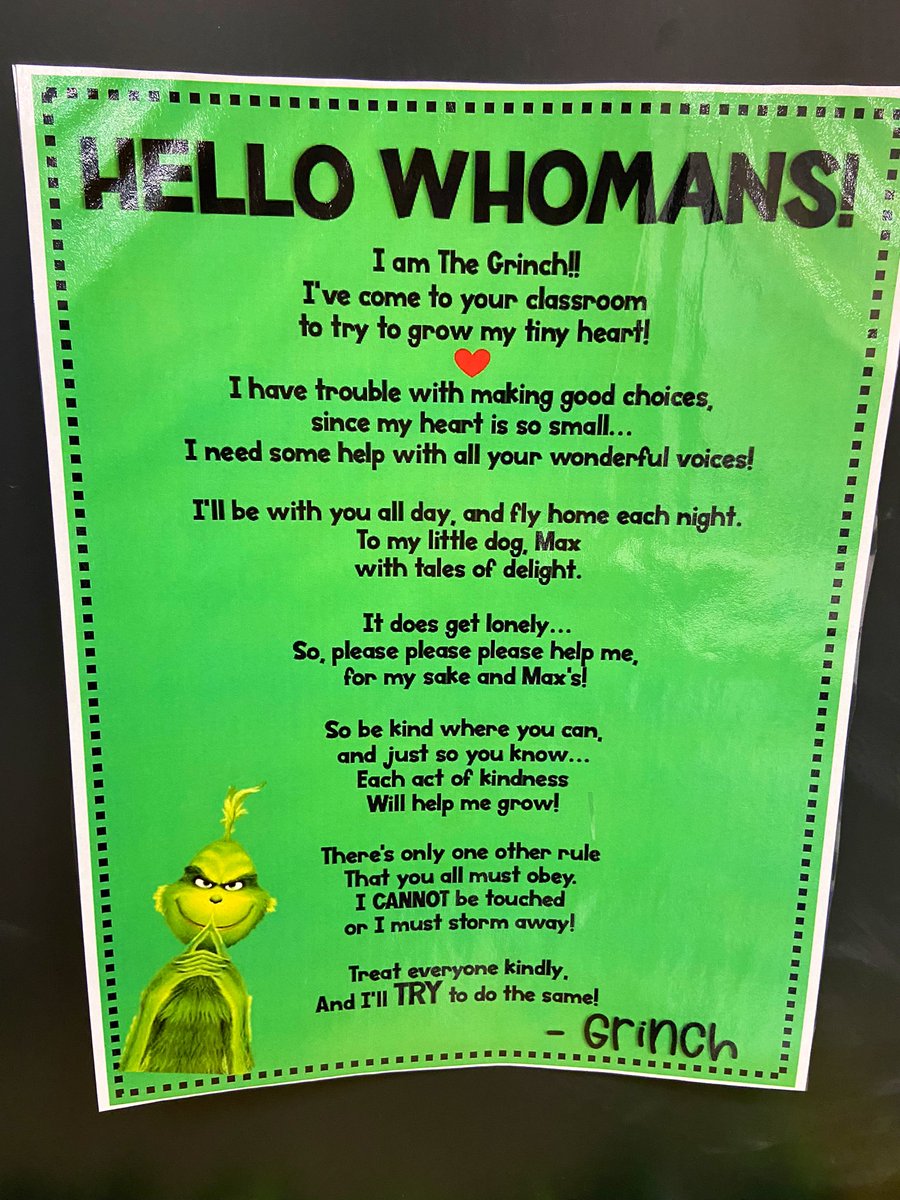 HELLO WHOMANS!
I am The Grinch!!
I've come to your classroom
to try to grow my tiny heart!
I have trouble with making good choices,
since my heart is so small...
I need some help with all your wonderful voices!
I'll be with you all day, and fly home each night.
To my little dog, Max
with tales of delight.
It does get lonely...
So, please please please help me,
for my sake and Max's!
So be kind where you can,
and just so you know...
Each act of kindness
Will help me grow!
There's only one other rule
That you all must obey.
I CANNOT be touched
or I must storm away!
Treat everyone kindly,
And I'll TRY to do the same!
- Grinch